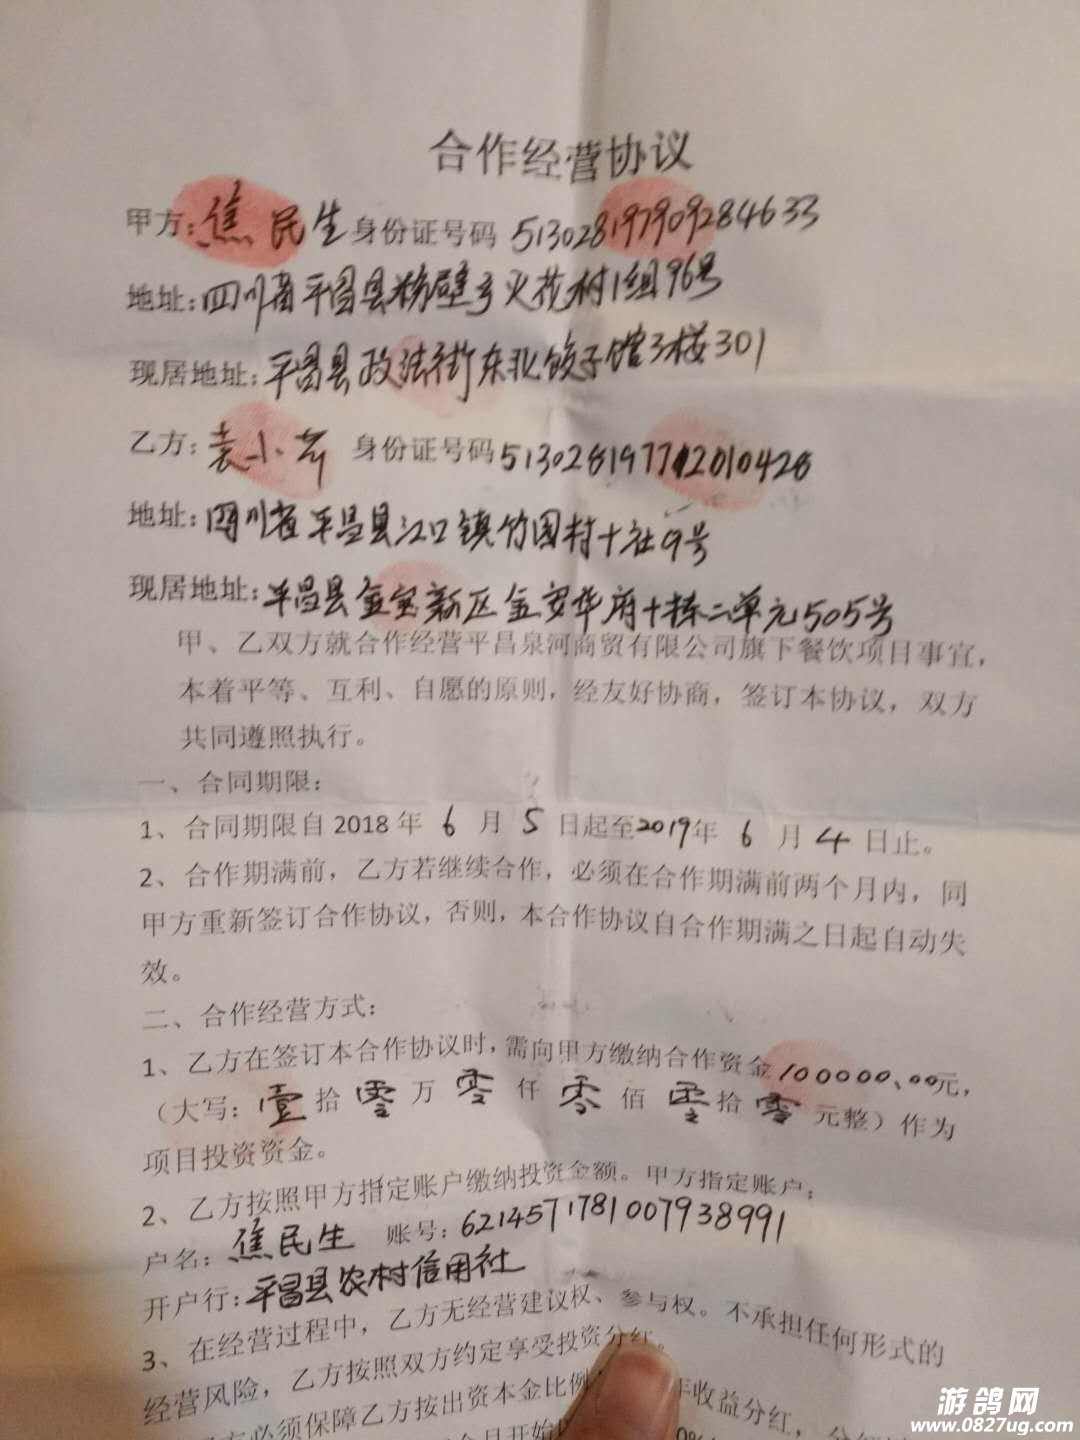 合作经营协议
甲方:焦民生身份证号码 513028197909284633
地址:四川省平昌县粉壁乡火花村1组96号
现居地址:平昌县政法街东北饺子馆3楼301
乙方:袁小芹 身份证号码513028197712010428
地址:四川省平昌县江口镇竹园村十社9号
现居地址:平昌县金宝新区金安华府十栋二单元505号
甲、乙双方就合作经营平昌泉河商贸有限公司旗下餐饮项目事宜,
本着平等、互利、自愿的原则,经友好协商,签订本协议,双方
共同遵照执行。
一、合同期限:
1、合同期限自2018年 6 月 5 日起至2019年 6 月 4 日止。
2、合作期满前,乙方若继续合作,必须在合作期满前两个月内,同
甲方重新签订合作协议,否则,本合作协议自合作期满之日起自动失
效。
二、合作经营方式:
1、乙方在签订本合作协议时,需向甲方缴纳合作资金100000.00元,
(大写:壹 拾 零 万 零 仟 零 佰 零 拾 零 元整)作为
项目投资资金。
2、乙方按照甲方指定账户缴纳投资金额。甲方指定账户:
户名:焦民生 账号:6214571781007938991
开户行:平昌县农村信用社
3、在经营过程中,乙方无经营建议权、参与权。不承担任何形式的
经营风险,乙方按照双方约定享受投资分红。
方必须保障乙方按出资本金比例 年收益分红,
个月开始
游鸽网
www.0827ug.com